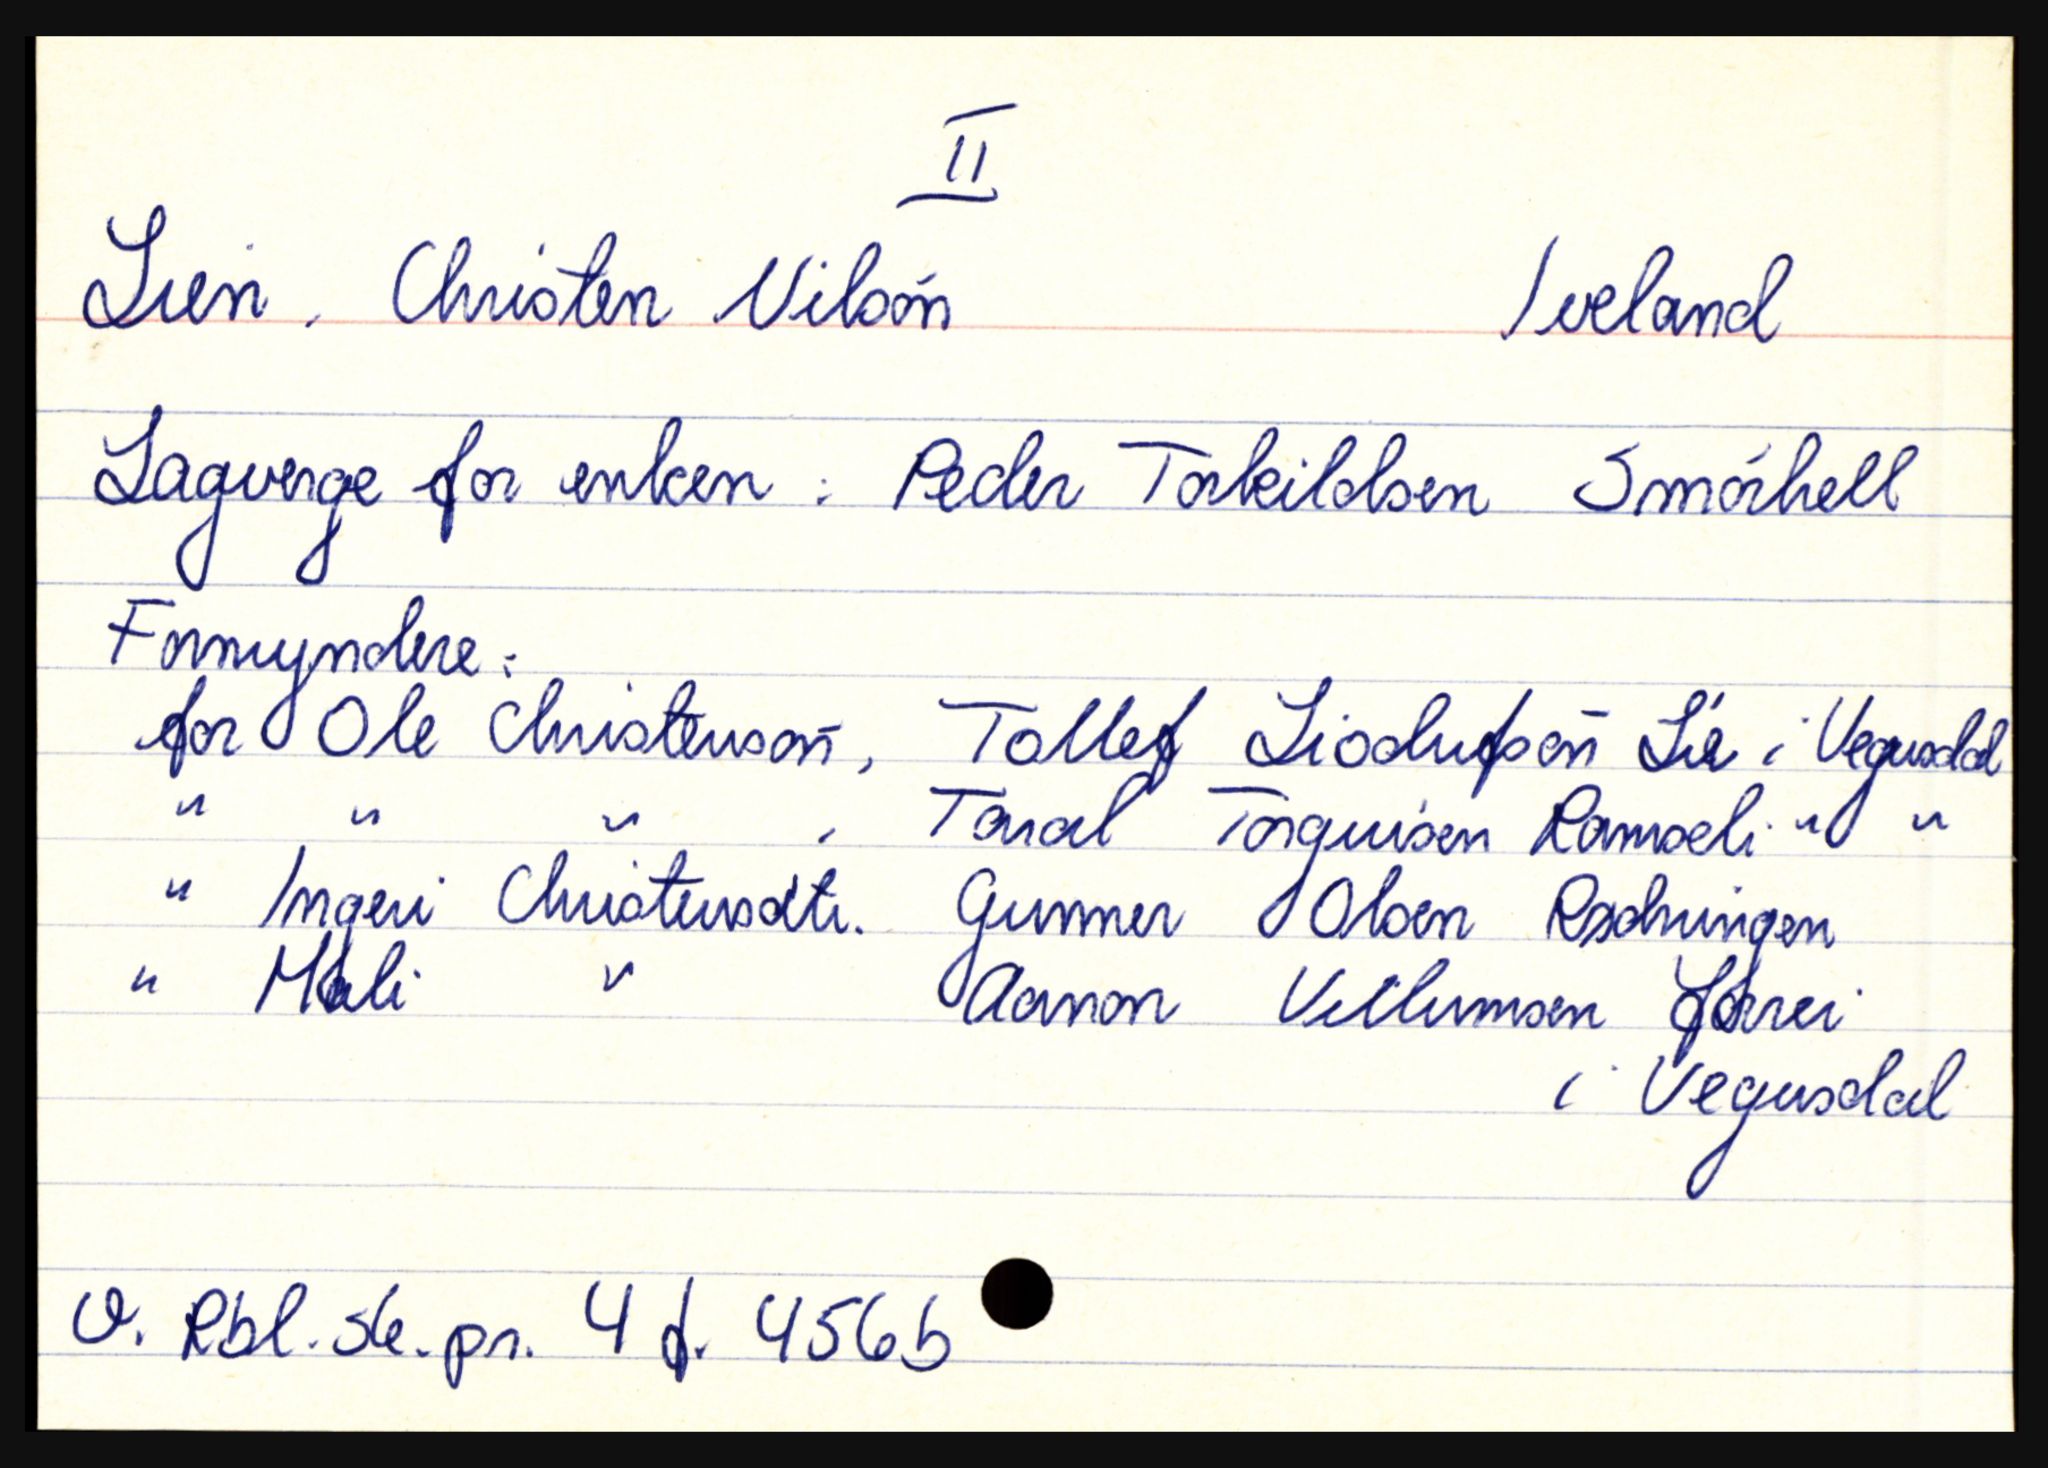 II
Lien, Christen Nilsøn Iveland
Lagverge for enken: Peder Torkildsen Smørhell
Formyndere:
for Ole Christensøn, Tollef Liodufsøn Lie i Vegusdal
" " " , Taral Torguisen Ramseli " "
" Ingeri Christensdtr. Gunner Olsen
" Mali " Aanon Villumsen
i Vegusdal
V. Rbl. sk. pr. 4 f. 456b